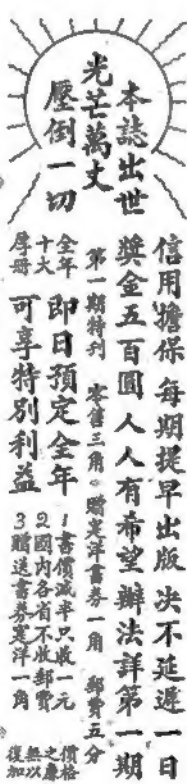 本誌出世
光芒萬丈
壓倒一切
信用擔保每期提早出版決不延遲一日
獎金五百圓人人有希望辦法詳第一期
第一期特刊 零售三角。贈寔洋書券一角 郵費五分
全年十大厚冊
即日預定全年可享特別利益
1書價減半只收一元
2國內各省不收郵費
3贈送書券寔洋一角
價格之廉無以復加